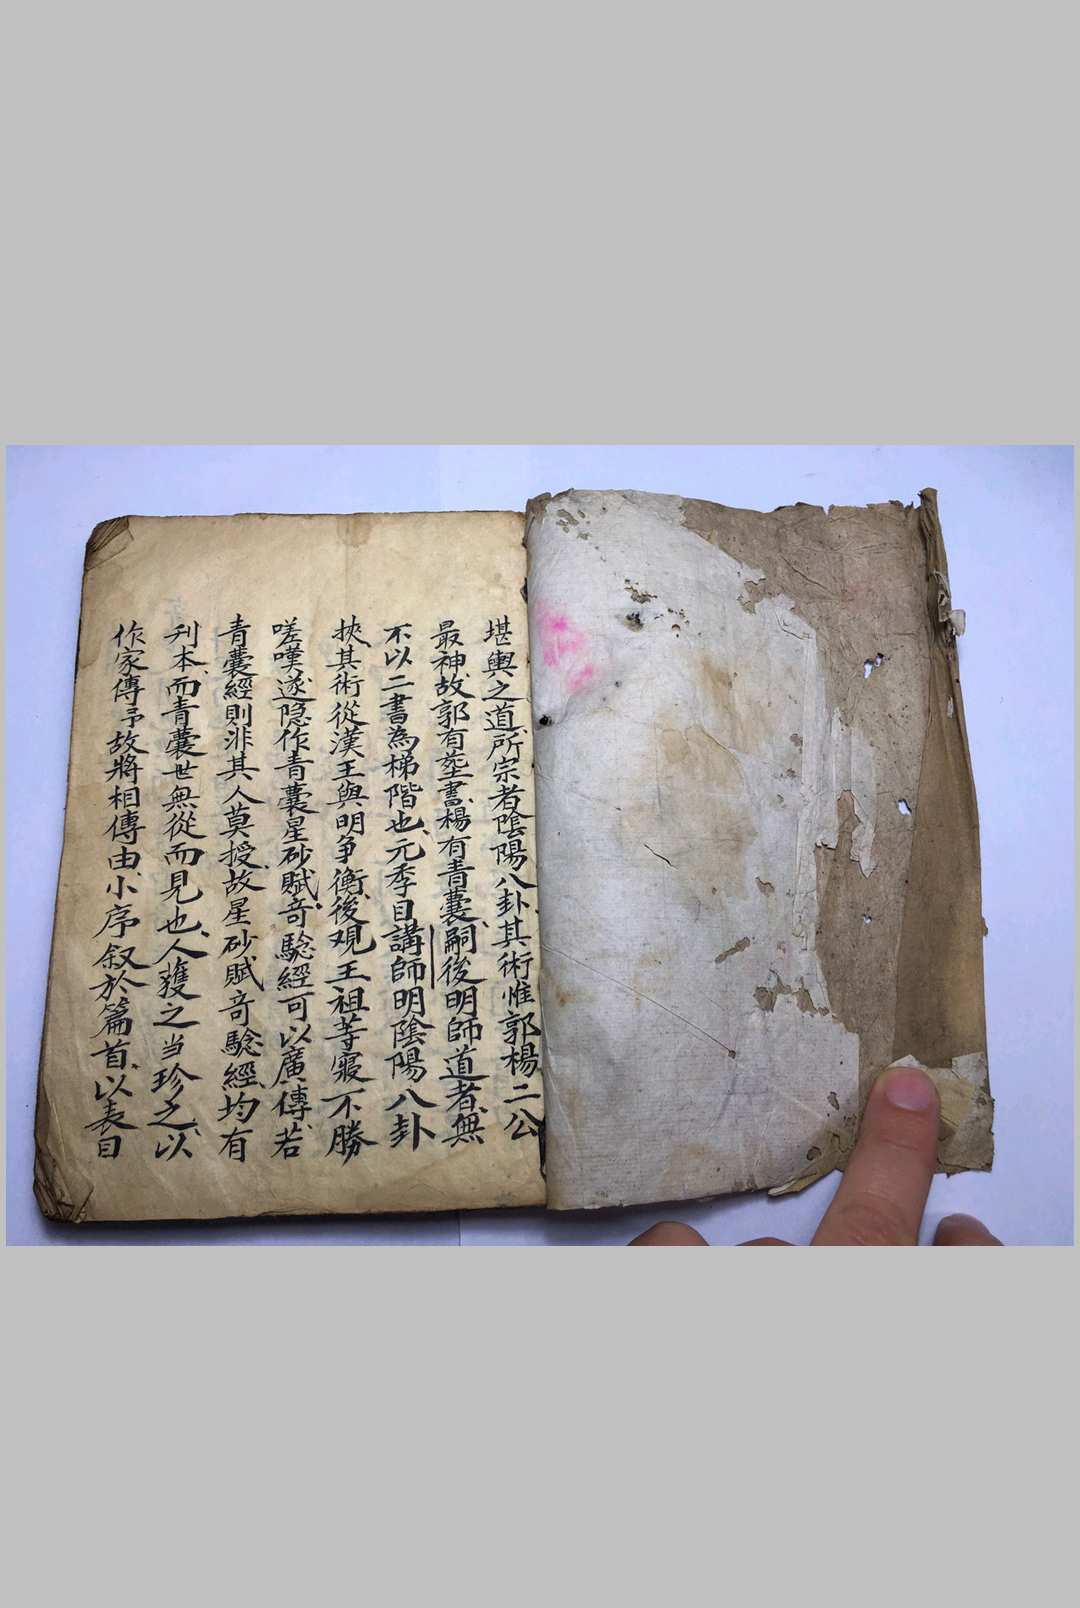 堪輿之道所宗者陰陽八卦其術惟郭楊二公
最神故郭有塟書楊有青囊嗣後明師道者無
不以二書為梯階也元季目講師明陰陽八卦
挾其術從漢王與明爭衡後观王祖等寢不勝
嗟嘆遂隐作青囊星砂賦竒騐經可以廣傳若
青囊經則非其人莫授故星砂賦竒騐經均有
刋本而青囊世無從而見也人獲之当珍之以
作家傳予故將相傳由小序叙於篇首以表目